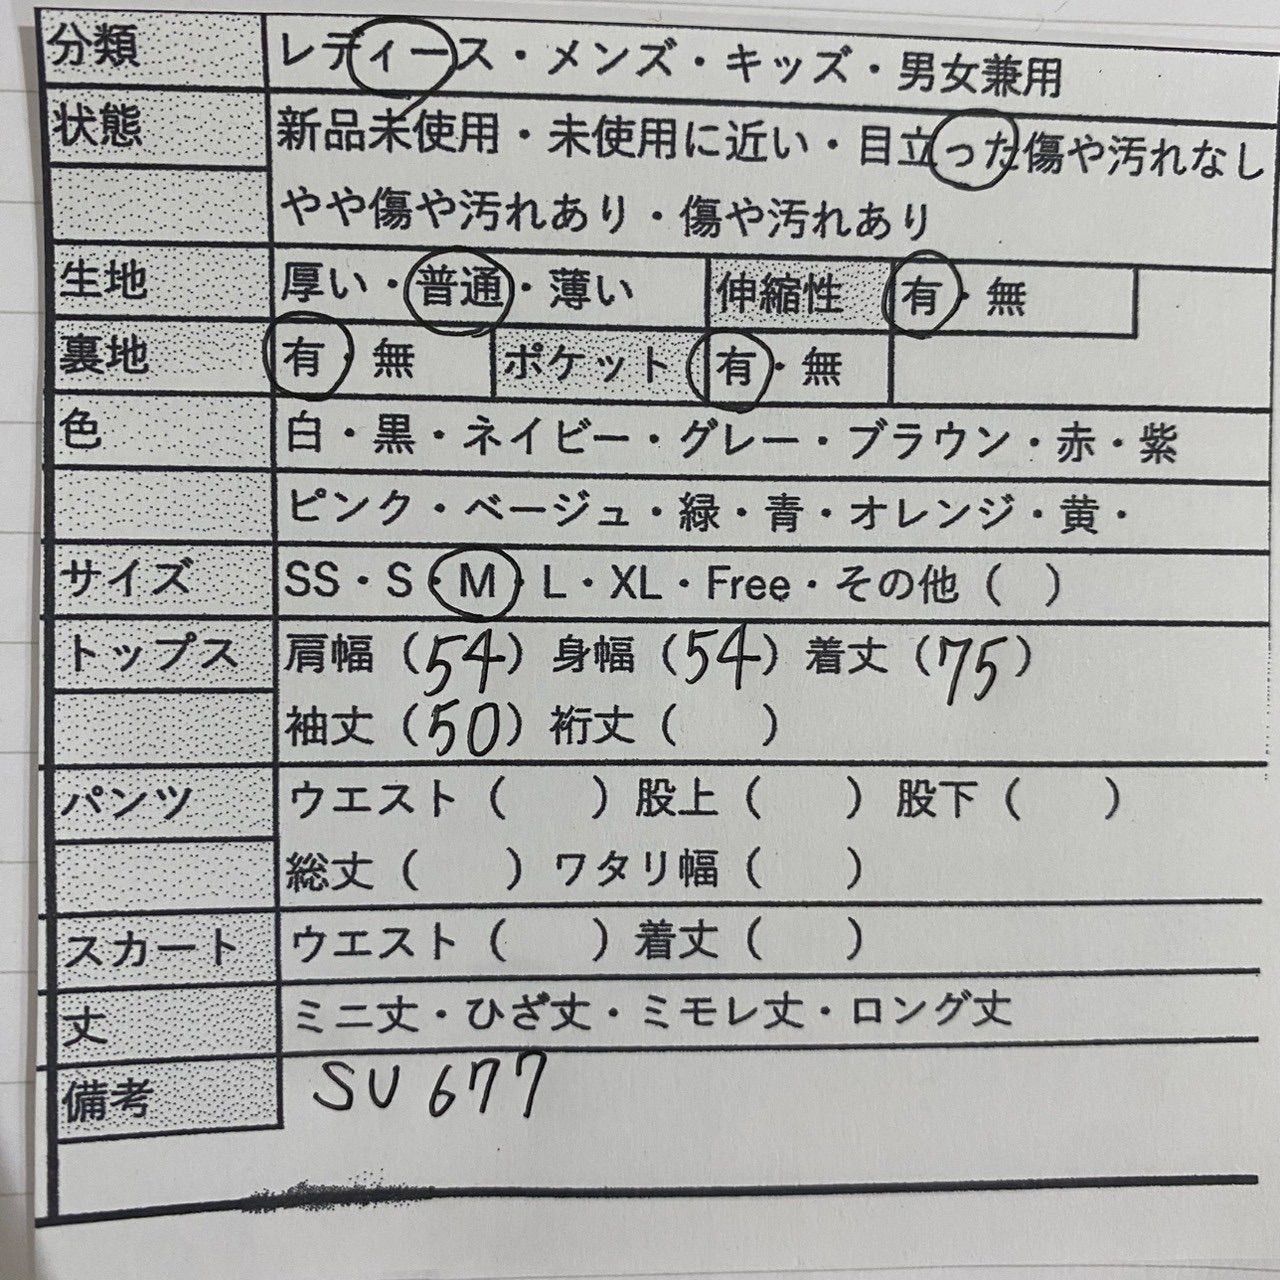 分類 レディース・メンズ・キッズ・男女兼用
状態 新品未使用・未使用に近い・目立った傷や汚れなし
やや傷や汚れあり・傷や汚れあり
生地 厚い・普通・薄い 伸縮性 有・無
裏地 有・無 ポケット 有・無
色 白・黒・ネイビー・グレー・ブラウン・赤・紫
ピンク・ベージュ・緑・青・オレンジ・黄・
サイズ SS・S・M・L・XL・Free・その他（ ）
トップス 肩幅（54）身幅（54）着丈（75）
袖丈（50）裄丈（ ）
パンツ ウエスト（ ）股上（ ）股下（ ）
総丈（ ）ワタリ幅（ ）
スカート ウエスト（ ）着丈（ ）
丈 ミニ丈・ひざ丈・ミモレ丈・ロング丈
備考 SU677